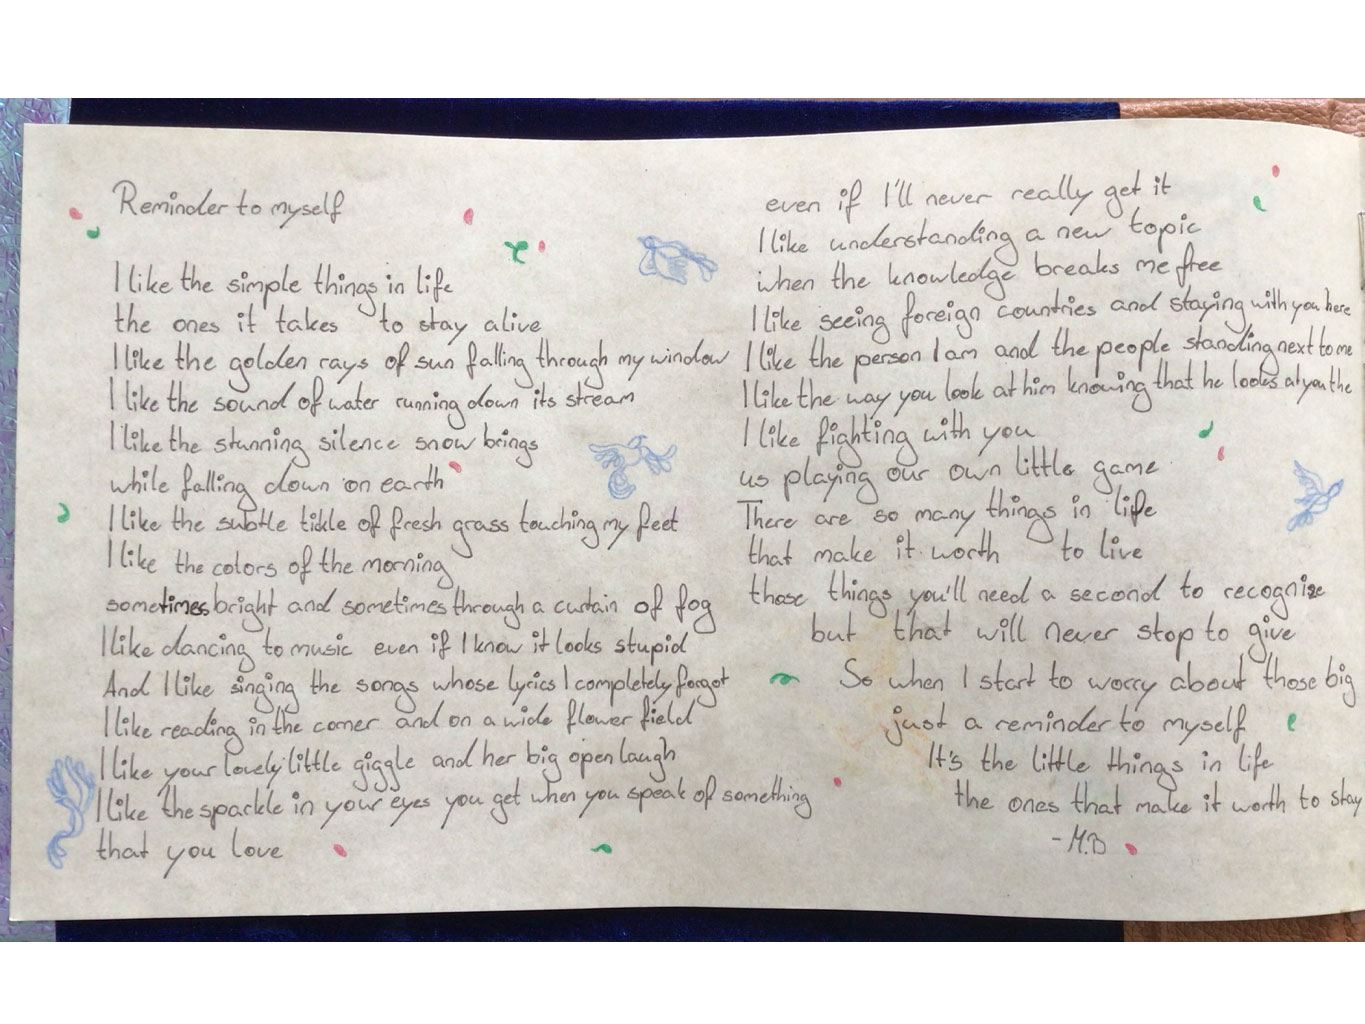 Reminder to myself
I like the simple things in life
the ones it takes to stay alive
I like the golden rays of sun falling through my window
I like the sound of water running down its stream
I like the stunning silence snow brings
while falling down on earth
I like the subtle tickle of fresh grass touching my feet
I like the colors of the morning
sometimes bright and sometimes through a curtain of fog
I like dancing to music even if I know it looks stupid
And I like singing the songs whose lyrics I completely forgot
I like reading in the corner and on a wide flower field
I like your lovely little giggle and her big open laugh
I like the sparkle in your eyes you get when you speak of something
that you love
even if I'll never really get it
I like understanding a new topic
when the knowledge breaks me free
I like seeing foreign countries and staying with you here
I like the person I am and the people standing next to me
I like the way you look at him knowing that he looks at you the
I like fighting with you
us playing our own little game
There are so many things in life
that make it worth to live
those things you'll need a second to recognize
but that will never stop to give
So when I start to worry about those big
just a reminder to myself
It's the little things in life
the ones that make it worth to stay
- M.B